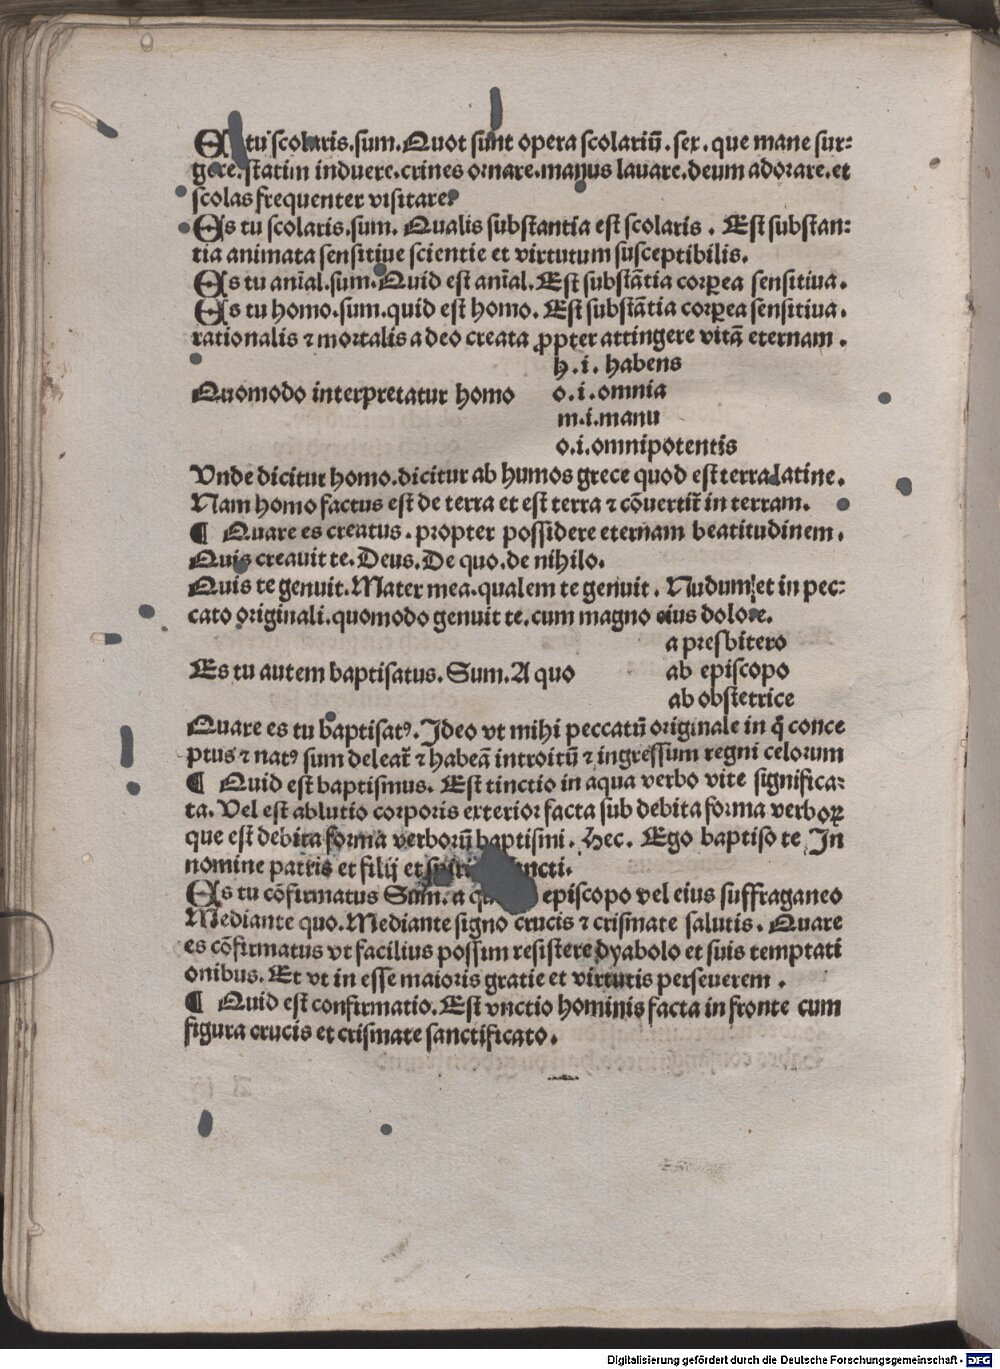 Es tu scolaris.sum.Quot sunt opera scolariū.sex.que mane sur:
gere.statim induere.crines ornare.manus lauare.deum adorare.et
scolas frequenter visitare?
Es tu scolaris.sum. Qualis substantia est scolaris. Est substan:
tia animata sensitiue scientie et virtutum susceptibilis.
Es tu anīal.sum.Quid est anīal. Est substātia corꝑea sensitiua.
Es tu homo.sum.quid est homo. Est substātia corꝑea sensitiua.
rationalis ⁊ mortalis a deo creata ꝓpter attingere vitā eternam.
h.i. habens
Quomodo interpretatur homo o.i.omnia
m.i.manu
o.i.omnipotentis
Vnde dicitur homo.dicitur ab humos grece quod est terra latine.
Nam homo factus est de terra et est terra ⁊ cōuertit̄ in terram.
¶ Quare es creatus. propter possidere eternam beatitudinem.
Quis creauit te. Deus. De quo. de nihilo.
Quis te genuit. Mater mea. qualem te genuit. Nudum et in pec:
cato originali.quomodo genuit te. cum magno eius dolore.
a presbitero
Es tu autem baptisatus. Sum. A quo ab episcopo
ab obstetrice
Quare es tu baptisatꝰ. Ideo vt mihi peccatū originale in q̄ conce
ptus ⁊ natꝰ sum deleat̄ ⁊ habeā introitū ⁊ ingressum regni celorum
¶ Quid est baptismus. Est tinctio in aqua verbo vite significa:
ta. Vel est ablutio corporis exterior facta sub debita forma verboꝝ
que est debita forma verborū baptismi. Hec. Ego baptiso te In
nomine patris et filij et spiritus sancti.
Es tu cōfirmatus Sum. a quo episcopo vel eius suffraganeo
Mediante quo. Mediante signo crucis ⁊ crismate salutis. Quare
es cōfirmatus vt facilius possim resistere dyabolo et suis temptati
onibus. Et vt in esse maioris gratie et virtutis perseuerem.
¶ Quid est confirmatio. Est vnctio hominis facta in fronte cum
figura crucis et crismate sanctificato.
Digitalisierung gefördert durch die Deutsche Forschungsgemeinschaft - DFG